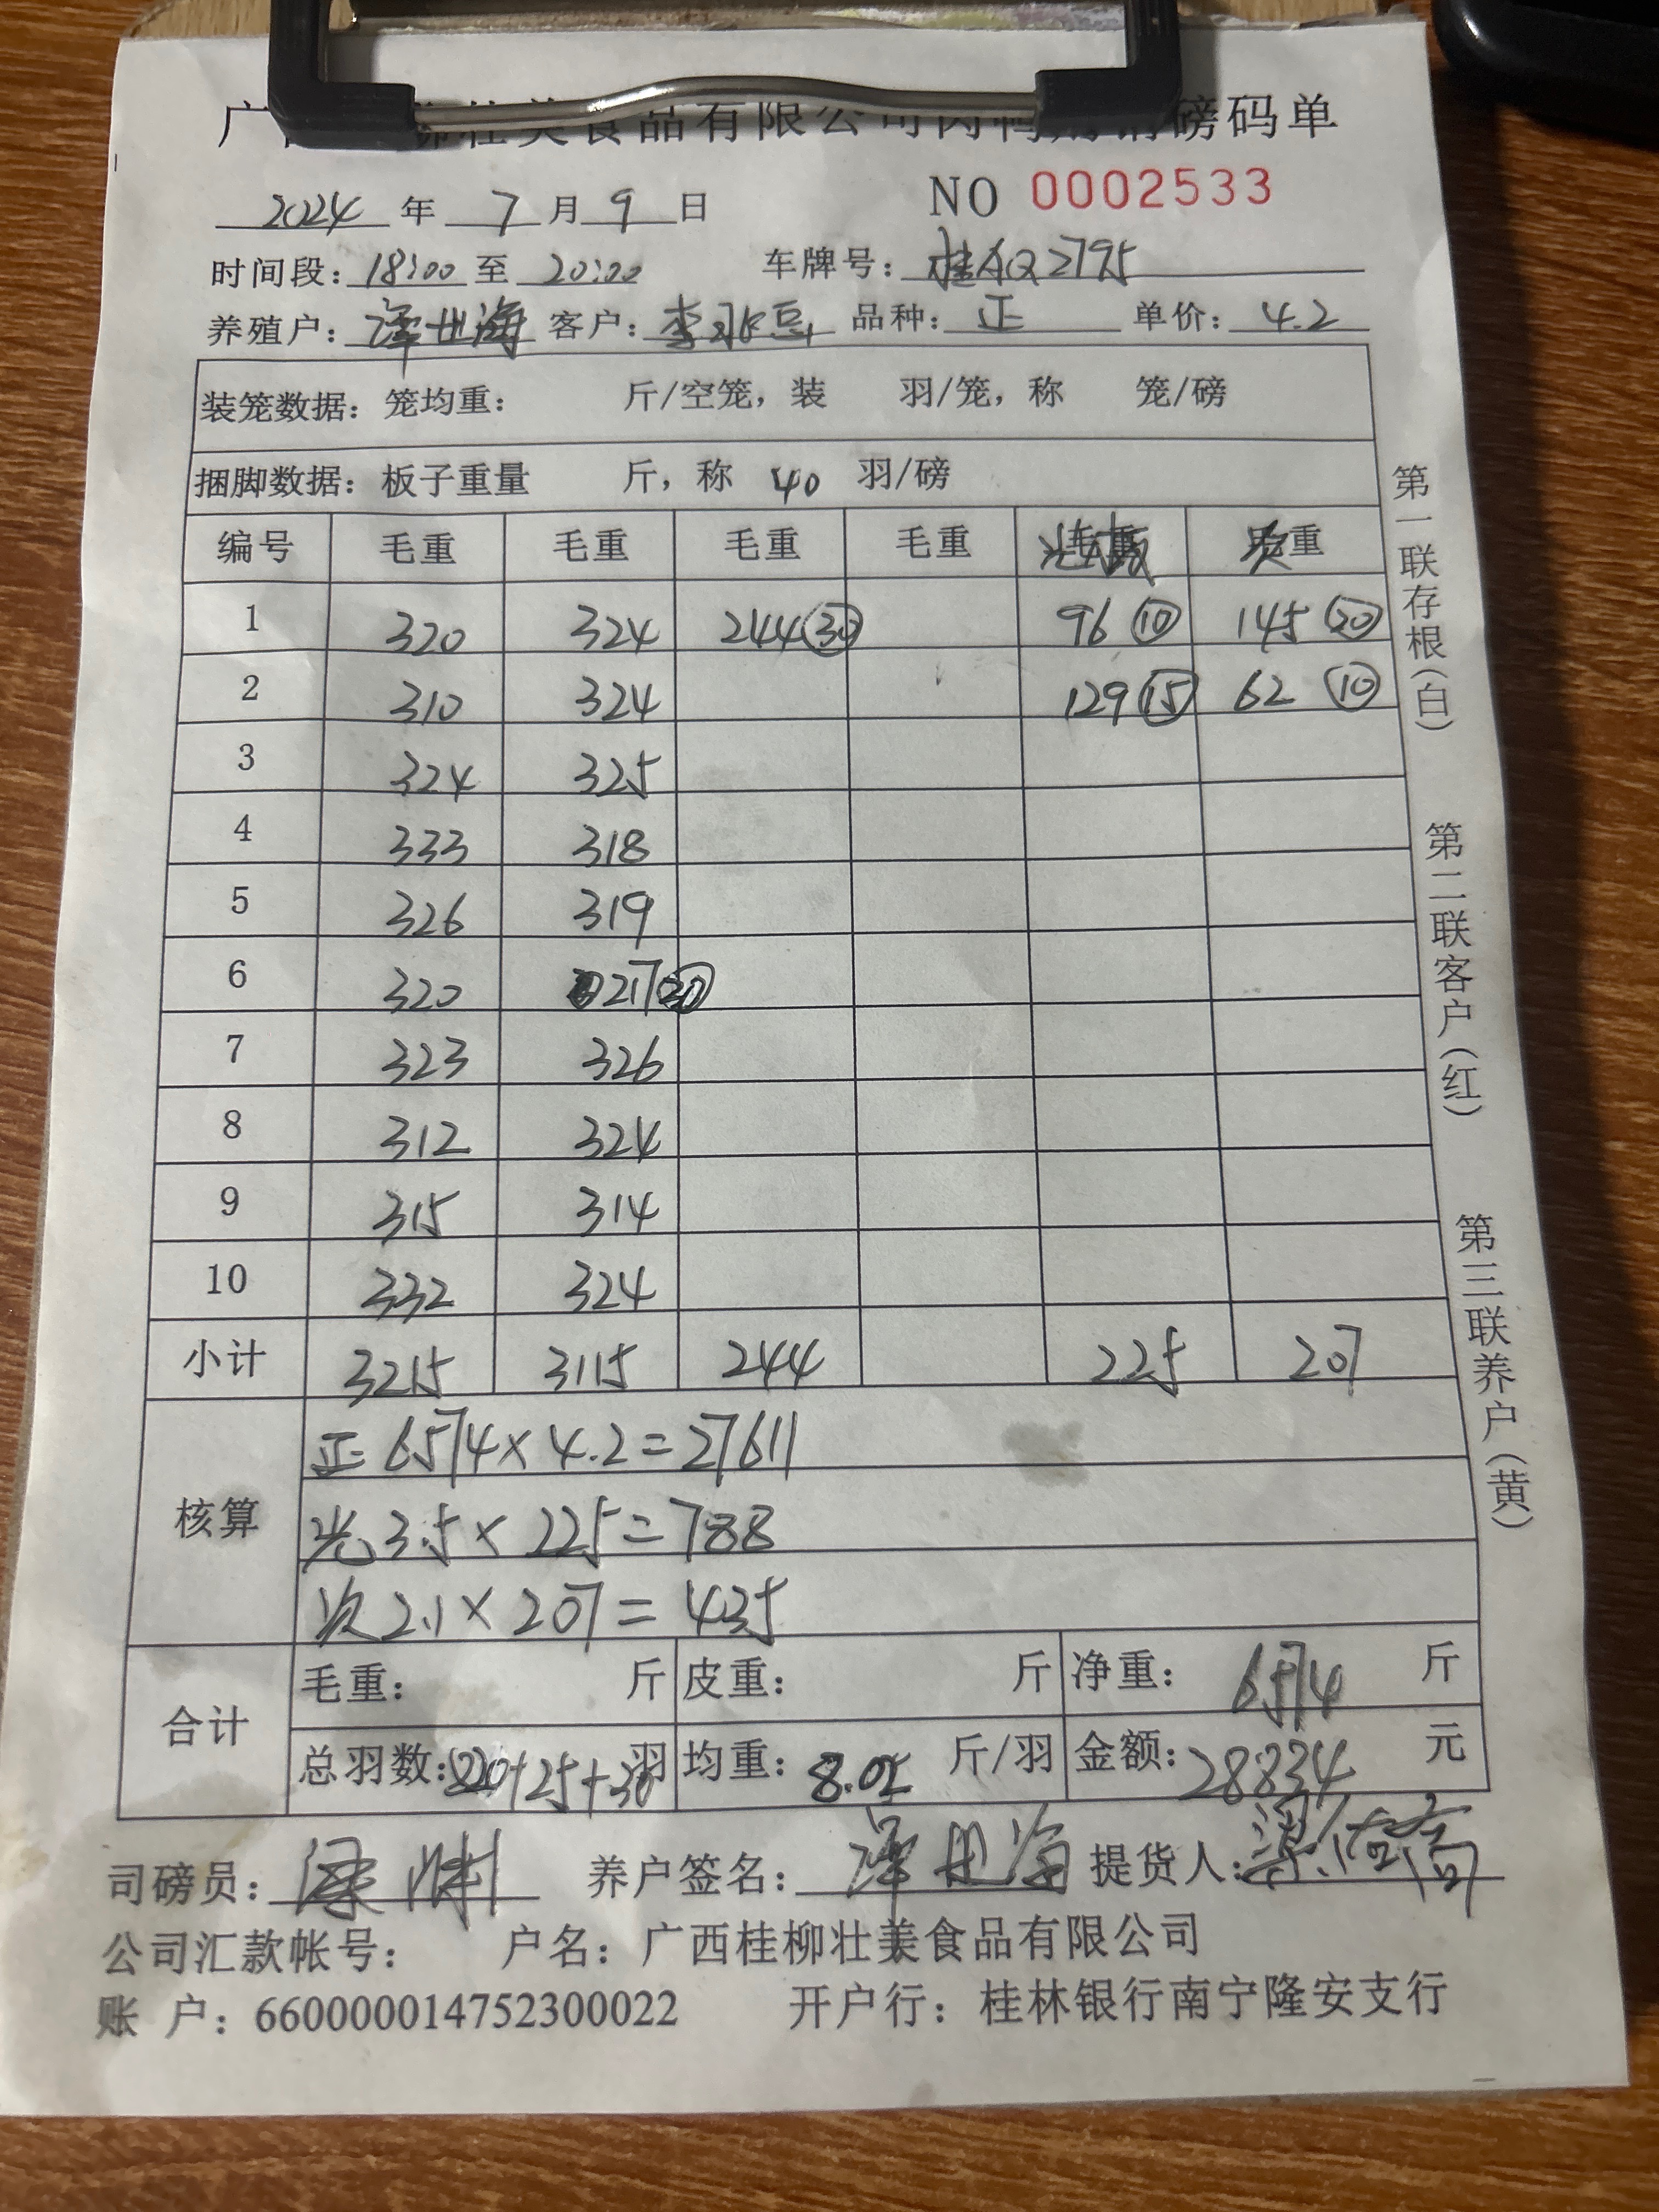 广 壮美食品有限公司肉鸭 磅码单
2024 年 7 月 9 日 NO 0002533
时间段：18:00 至 20:00 车牌号：桂 2795
养殖户：海 客户：李 品种：正 单价：4.2
装笼数据：笼均重： 斤/空笼，装 羽/笼，称 笼/磅
捆脚数据：板子重量 斤，称 40 羽/磅
编号 毛重 毛重 毛重 毛重 次重
1 320 324 244 30 96 10 145 20
2 310 324 129 15 62 10
3 324 325
4 333 318
5 326 319
6 320 217
7 323 326
8 312 324
9 315 314
10 332 324
小计 3215 3115 244 225 207
核算
正 6574×4.2=27611
光 3.5×225=788
次 2.1×207=435
合计
毛重： 斤 皮重： 斤 净重：6574 斤
总羽数：820+25+30 羽 均重：8.02 斤/羽 金额：28834 元
司磅员：梁 养户签名： 提货人：梁
公司汇款帐号： 户名：广西桂柳壮美食品有限公司
账 户：660000014752300022 开户行：桂林银行南宁隆安支行
第一联存根（白）
第二联客户（红）
第三联养户（黄）